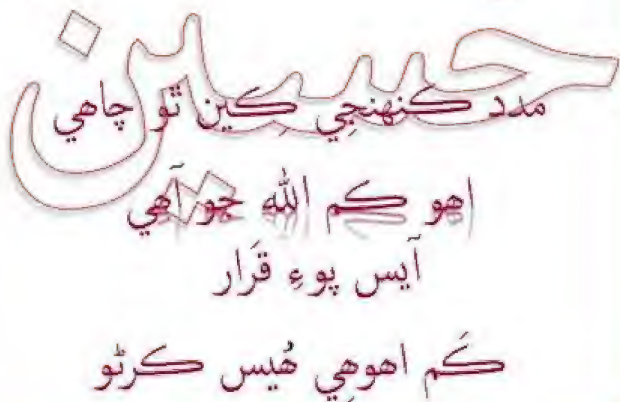 حسين
مدد ڪنهنجِي ڪِين ٿو چاهي
اهو ڪم الله جو آهي
آيس پوءِ قَرار
ڪَم اهوهِي هُيس ڪرڻو